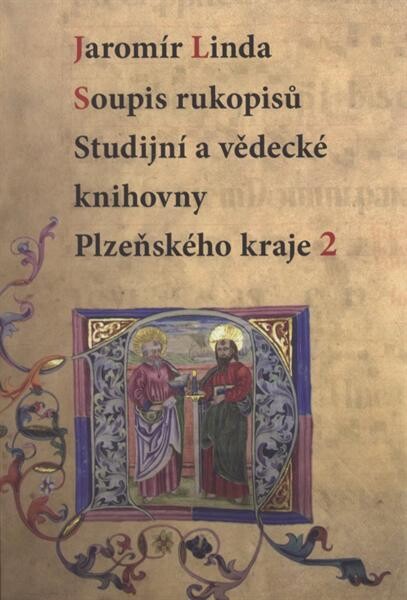 Jaromír Linda
Soupis rukopisů
Studijní a vědecké
knihovny
Plzeňského kraje 2